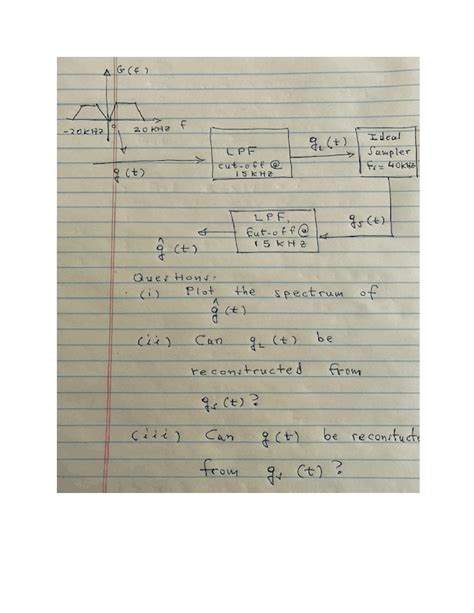 G(f)
-20KHZ 0 20KHZ f
g(t)
LPF
cut-off @
15KHZ
g_L(t)
Ideal
Sampler
Fs = 40KHZ
g_s(t)
LPF,
Cut-off @
15 KHZ
ĝ(t)
Questions.
(i) Plot the spectrum of
ĝ(t)
(ii) Can g_L(t) be
reconstructed from
g_s(t)?
(iii) Can g(t) be reconstucte
from g_s(t)?